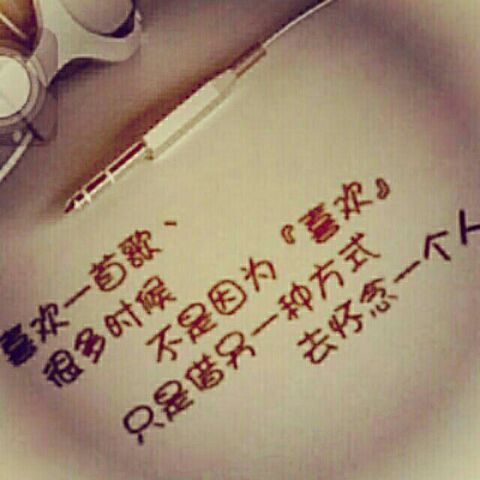 喜欢一首歌、
很多时候
不是因为『喜欢』
只是借另一种方式
去怀念一个人